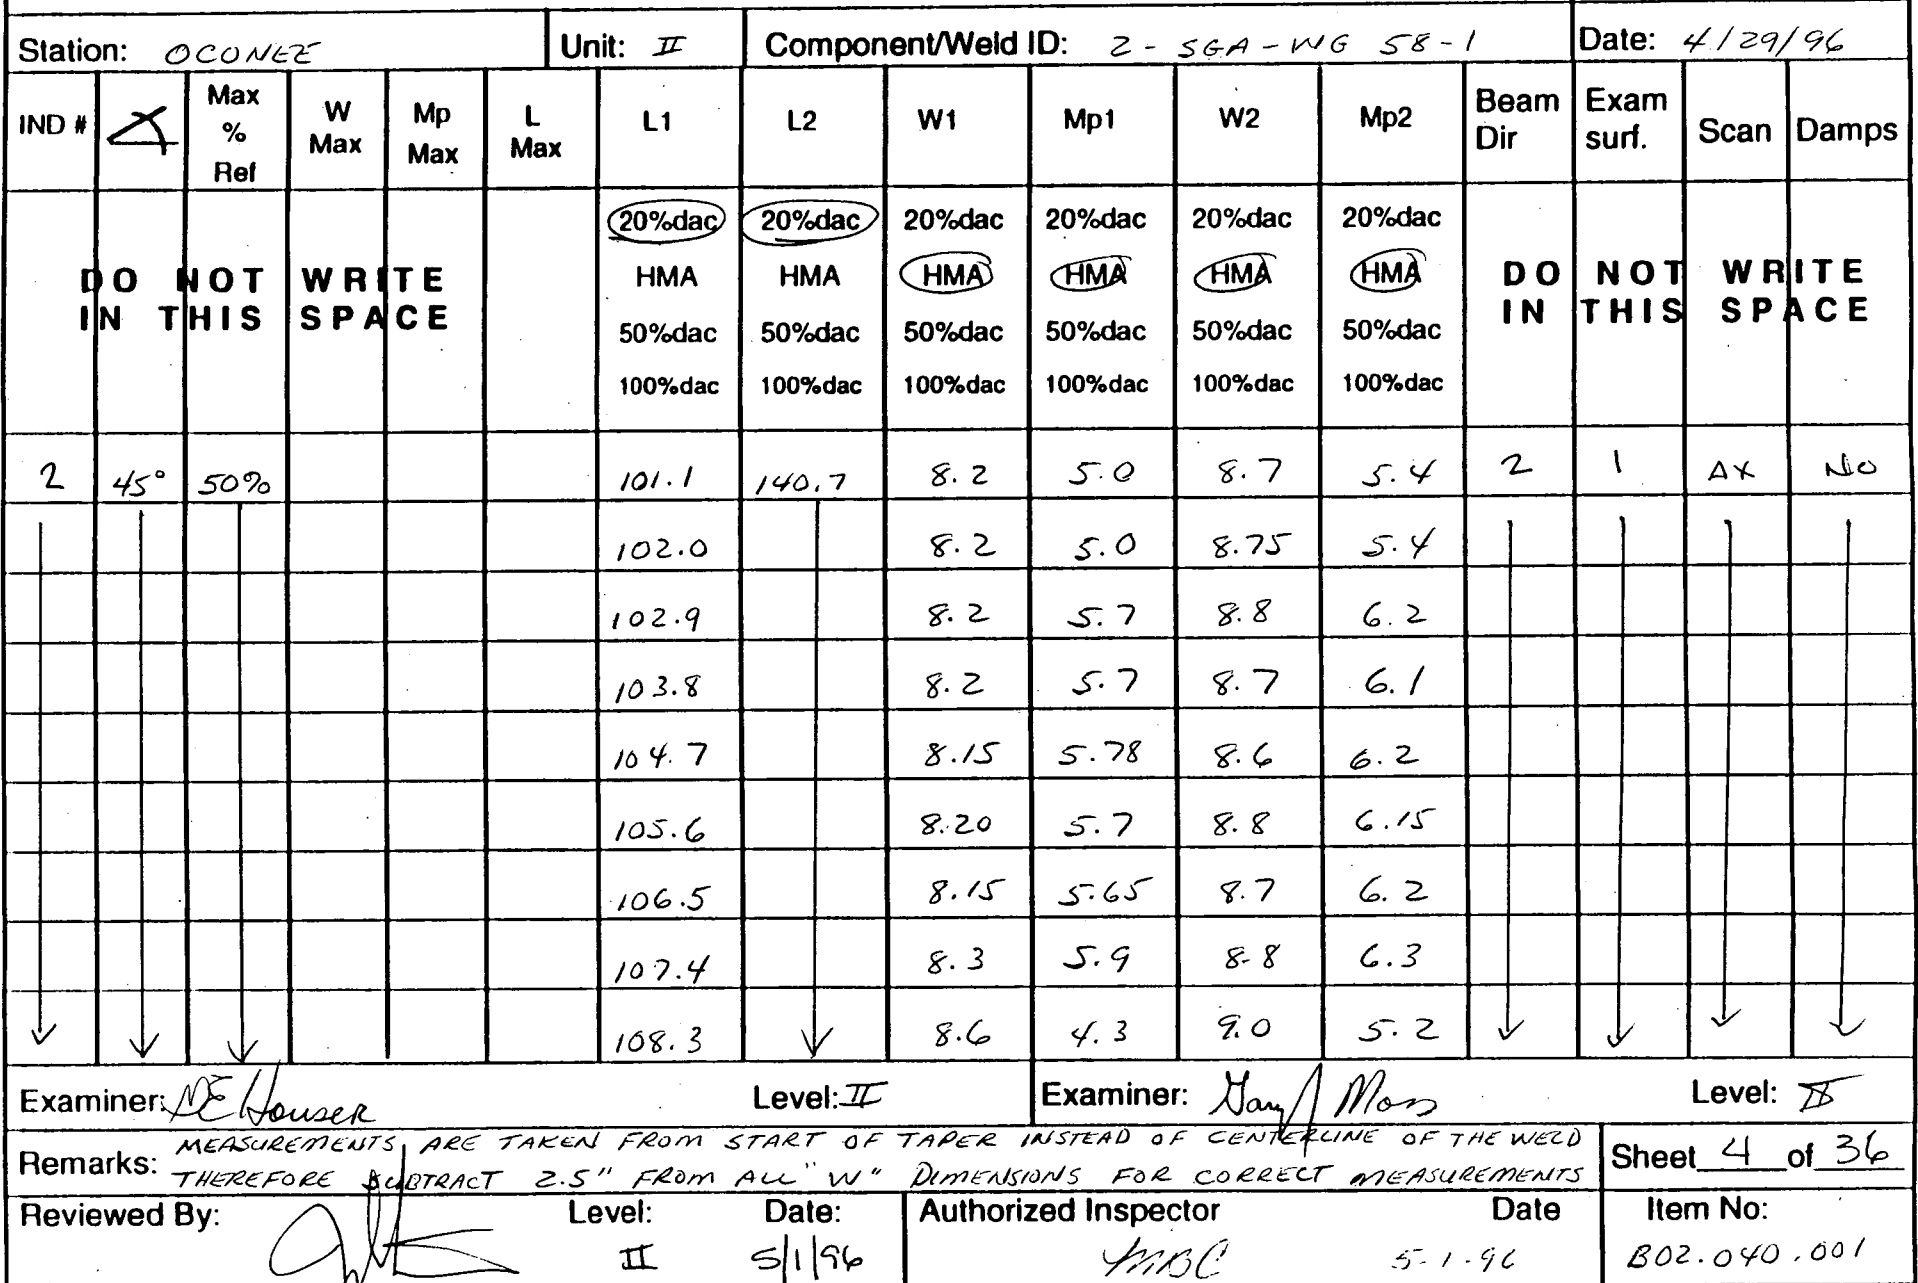 Station: OCONEE Unit: II Component/Weld ID: 2-SGA-WG 58-1 Date: 4/29/96
IND # Max % Ref W Max Mp Max L Max L1 L2 W1 Mp1 W2 Mp2 Beam Dir Exam surf. Scan Damps
20%dac 20%dac 20%dac 20%dac 20%dac 20%dac
DO NOT WRITE HMA HMA HMA HMA HMA HMA DO NOT WRITE
IN THIS SPACE IN THIS SPACE
50%dac 50%dac 50%dac 50%dac 50%dac 50%dac
100%dac 100%dac 100%dac 100%dac 100%dac 100%dac
2 45° 50% 101.1 140.7 8.2 5.0 8.7 5.4 2 1 AX NO
102.0 8.2 5.0 8.75 5.4
102.9 8.2 5.7 8.8 6.2
103.8 8.2 5.7 8.7 6.1
104.7 8.15 5.78 8.6 6.2
105.6 8.20 5.7 8.8 6.15
106.5 8.15 5.65 8.7 6.2
107.4 8.3 5.9 8.8 6.3
108.3 8.6 4.3 9.0 5.2
Examiner: Houser Level: II Examiner: Gary J Moss Level:
Remarks: MEASUREMENTS ARE TAKEN FROM START OF TAPER INSTEAD OF CENTERLINE OF THE WELD
THEREFORE SUBTRACT 2.5" FROM ALL "W" DIMENSIONS FOR CORRECT MEASUREMENTS
Sheet 4 of 36
Reviewed By: Level: II Date: 5/1/96 Authorized Inspector Date 5-1-96 Item No: B02.040.001